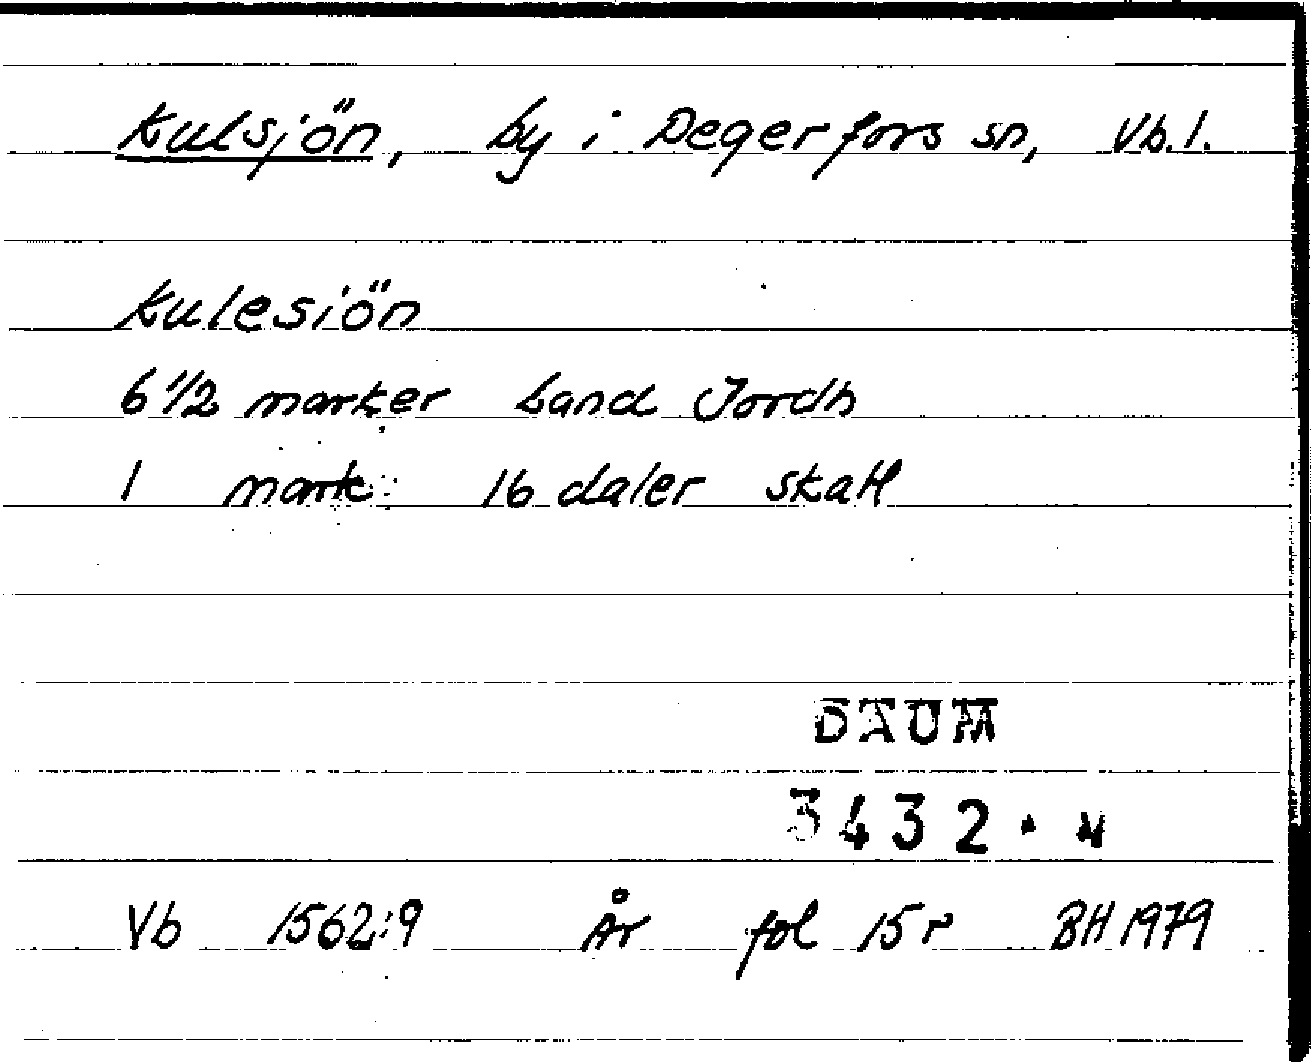 Kulsjön, by i Degerfors sn, Vb. l.
Kulesiön
6 1/2 marker Land Jordh
1 mark 16 daler skatt
DAUM
3432.
Vb 1562:9 År fol 15 r BH 1979